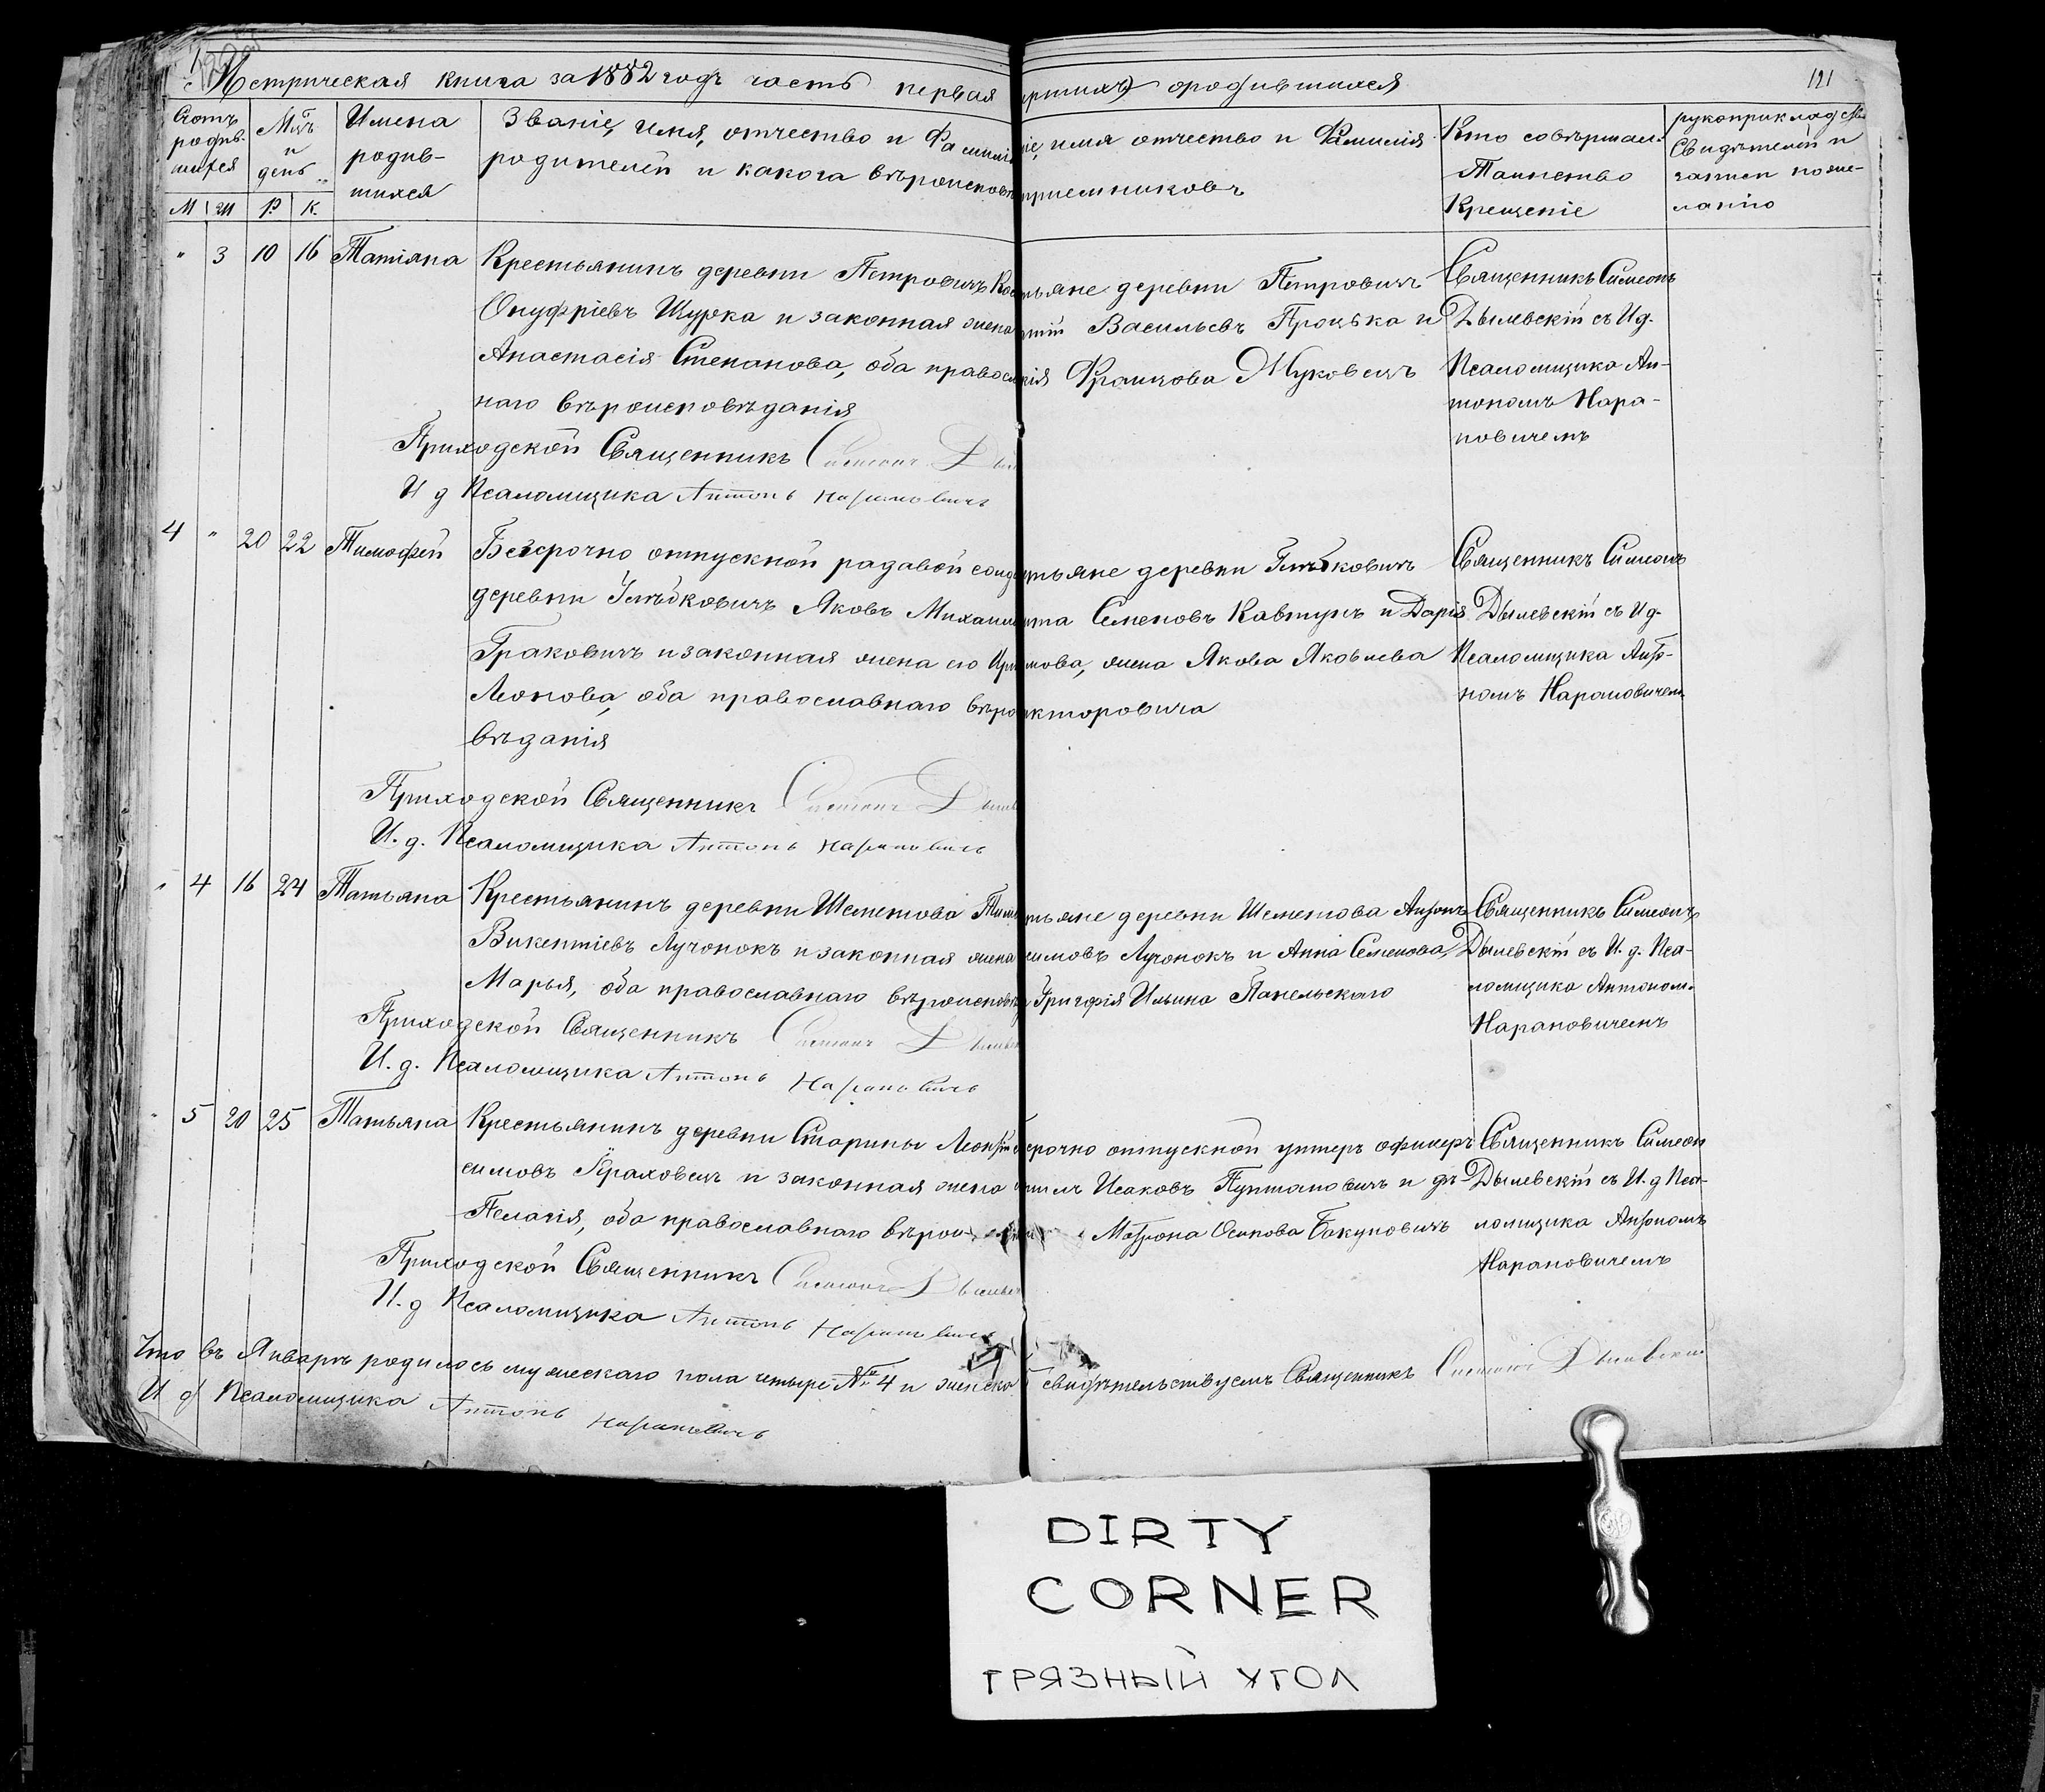 Метрическая книга за 1882 годъ часть первая
о родившихся
121
Счетъ родив-шихся
М Ж
Мцъ и день
Р. К.
Имена родив-шихся
Званіе, имя, отчество и Фамилія
родителей и какога вѣроисповѣ
имя отчество и Фамилія
пріемниковъ
Кто совершал.
Таинство
Крещеніе
рукоприкладство
Свидѣтелей
записи по же-
ланію
" 3 10 16 Татіяна
Крестьянинъ деревни Петровичъ
Онуфріевъ Щурка и законная жена
Анастасія Степанова, оба правосл
наго вѣроисповѣданія
Приходской Священникъ Симеонъ Ды
И д Псаломщика Антонъ Нарановичъ
тьяне деревни Петровичъ
Васильевъ Процька и
Францова Жуковецъ
Священникъ Симеонъ
Дылевскій съ И д.
Псаломщика Ан-
тономъ Нара-
новичемъ
4 " 20 22 Тимофей
Безсрочно отпускной радавой солд
деревни Глѣбковичъ Яковъ Михаил
Гракович и законная жена его Ири
Леонова, оба православнаго вѣро
вѣданія
Приходской Священникъ Симеонъ Дылев
И. д. Псаломщика Антонъ Нарановичъ
тьяне деревни Глѣбковичъ
ита Семеновъ Кавтунъ и Дарія
мова, жена Якова Яковлева
кторовича
Священникъ Симеонъ
Дылевскій съ И д.
Псаломщика Анто-
номъ Нарановичем
" 4 16 24 Татьяна
Крестьянинъ деревни Шеметова Тим
Викентіевъ Лучонокъ и законная жена
Марья, оба православнаго вѣроисповѣ
Приходской Священникъ Симеонъ Дылев
И. д. Псаломщика Антонъ Нарановичъ
тьяне деревни Шеметова Антонъ
симовъ Лучонокъ и Анна Семенова
Григорія Ильина Панельскаго
Священникъ Симеонъ
Дылевскій съ И. д. Пса-
ломщика Антоном.
Нарановичемъ
" 5 20 25 Татьяна
Крестьянинъ деревни Старины Леонтій
симовъ Краховецъ и законная жена
Пелагія, оба православнаго вѣрои
Приходской Священникъ Симеонъ Дылев
И. д Псаломщика Антонъ Нарановичъ
срочно отпускной унтеръ офицеръ
Исаковъ Пунтановичъ и дѣ
Матрона Осипова Бакуновичъ
Священникъ Симеон
Дылевскій съ И. д Пса-
ломщика Антономъ
Нарановичемъ
Что въ Январѣ родилось мужескаго пола четыре № 4 и женска
свидѣтельствуемъ Священникъ Симеонъ Дылевскій
И д Псаломщика Антонъ Нарановичъ
DIRTY
CORNER
ГРЯЗНЫЙ УГОЛ